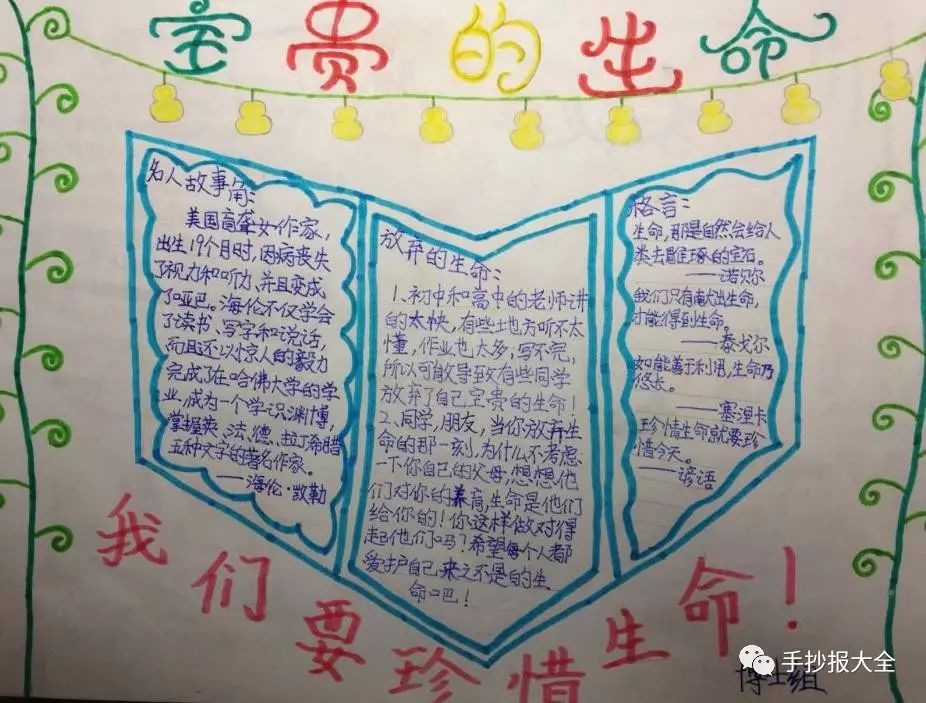 宝贵的生命
名人故事角:
美国盲聋女作家,
出生19个月时,因病丧失
了视力和听力,并且变成
了哑巴。海伦不仅学会
了读书、写字和说话,
而且还以惊人的毅力
完成了在哈佛大学的学
业,成为一个学识渊博,
掌握英、法、德、拉丁希腊
五种文字的著名作家。
——海伦·凯勒
放弃的生命:
1、初中和高中的老师讲
的太快,有些地方听不太
懂,作业也太多,写不完,
所以可能导致有些同学
放弃了自己宝贵的生命!
2、同学,朋友,当你放弃生
命的那一刻,为什么不考虑
一下你自己的父母,想想他
们对你的养育,生命是他们
给你的!你这样做对得
起他们吗?希望每个人都
爱护自己来之不是的生
命吧!
格言:
生命,那是自然会给人
类去雕琢的宝石。
——诺贝尔
我们只有献出生命,
才能得到生命。
——泰戈尔
如能善于利用,生命乃
悠长。
——塞涅卡
珍惜生命就要珍
惜今天。
——谚语
我们要珍惜生命!
博士组
手抄报大全